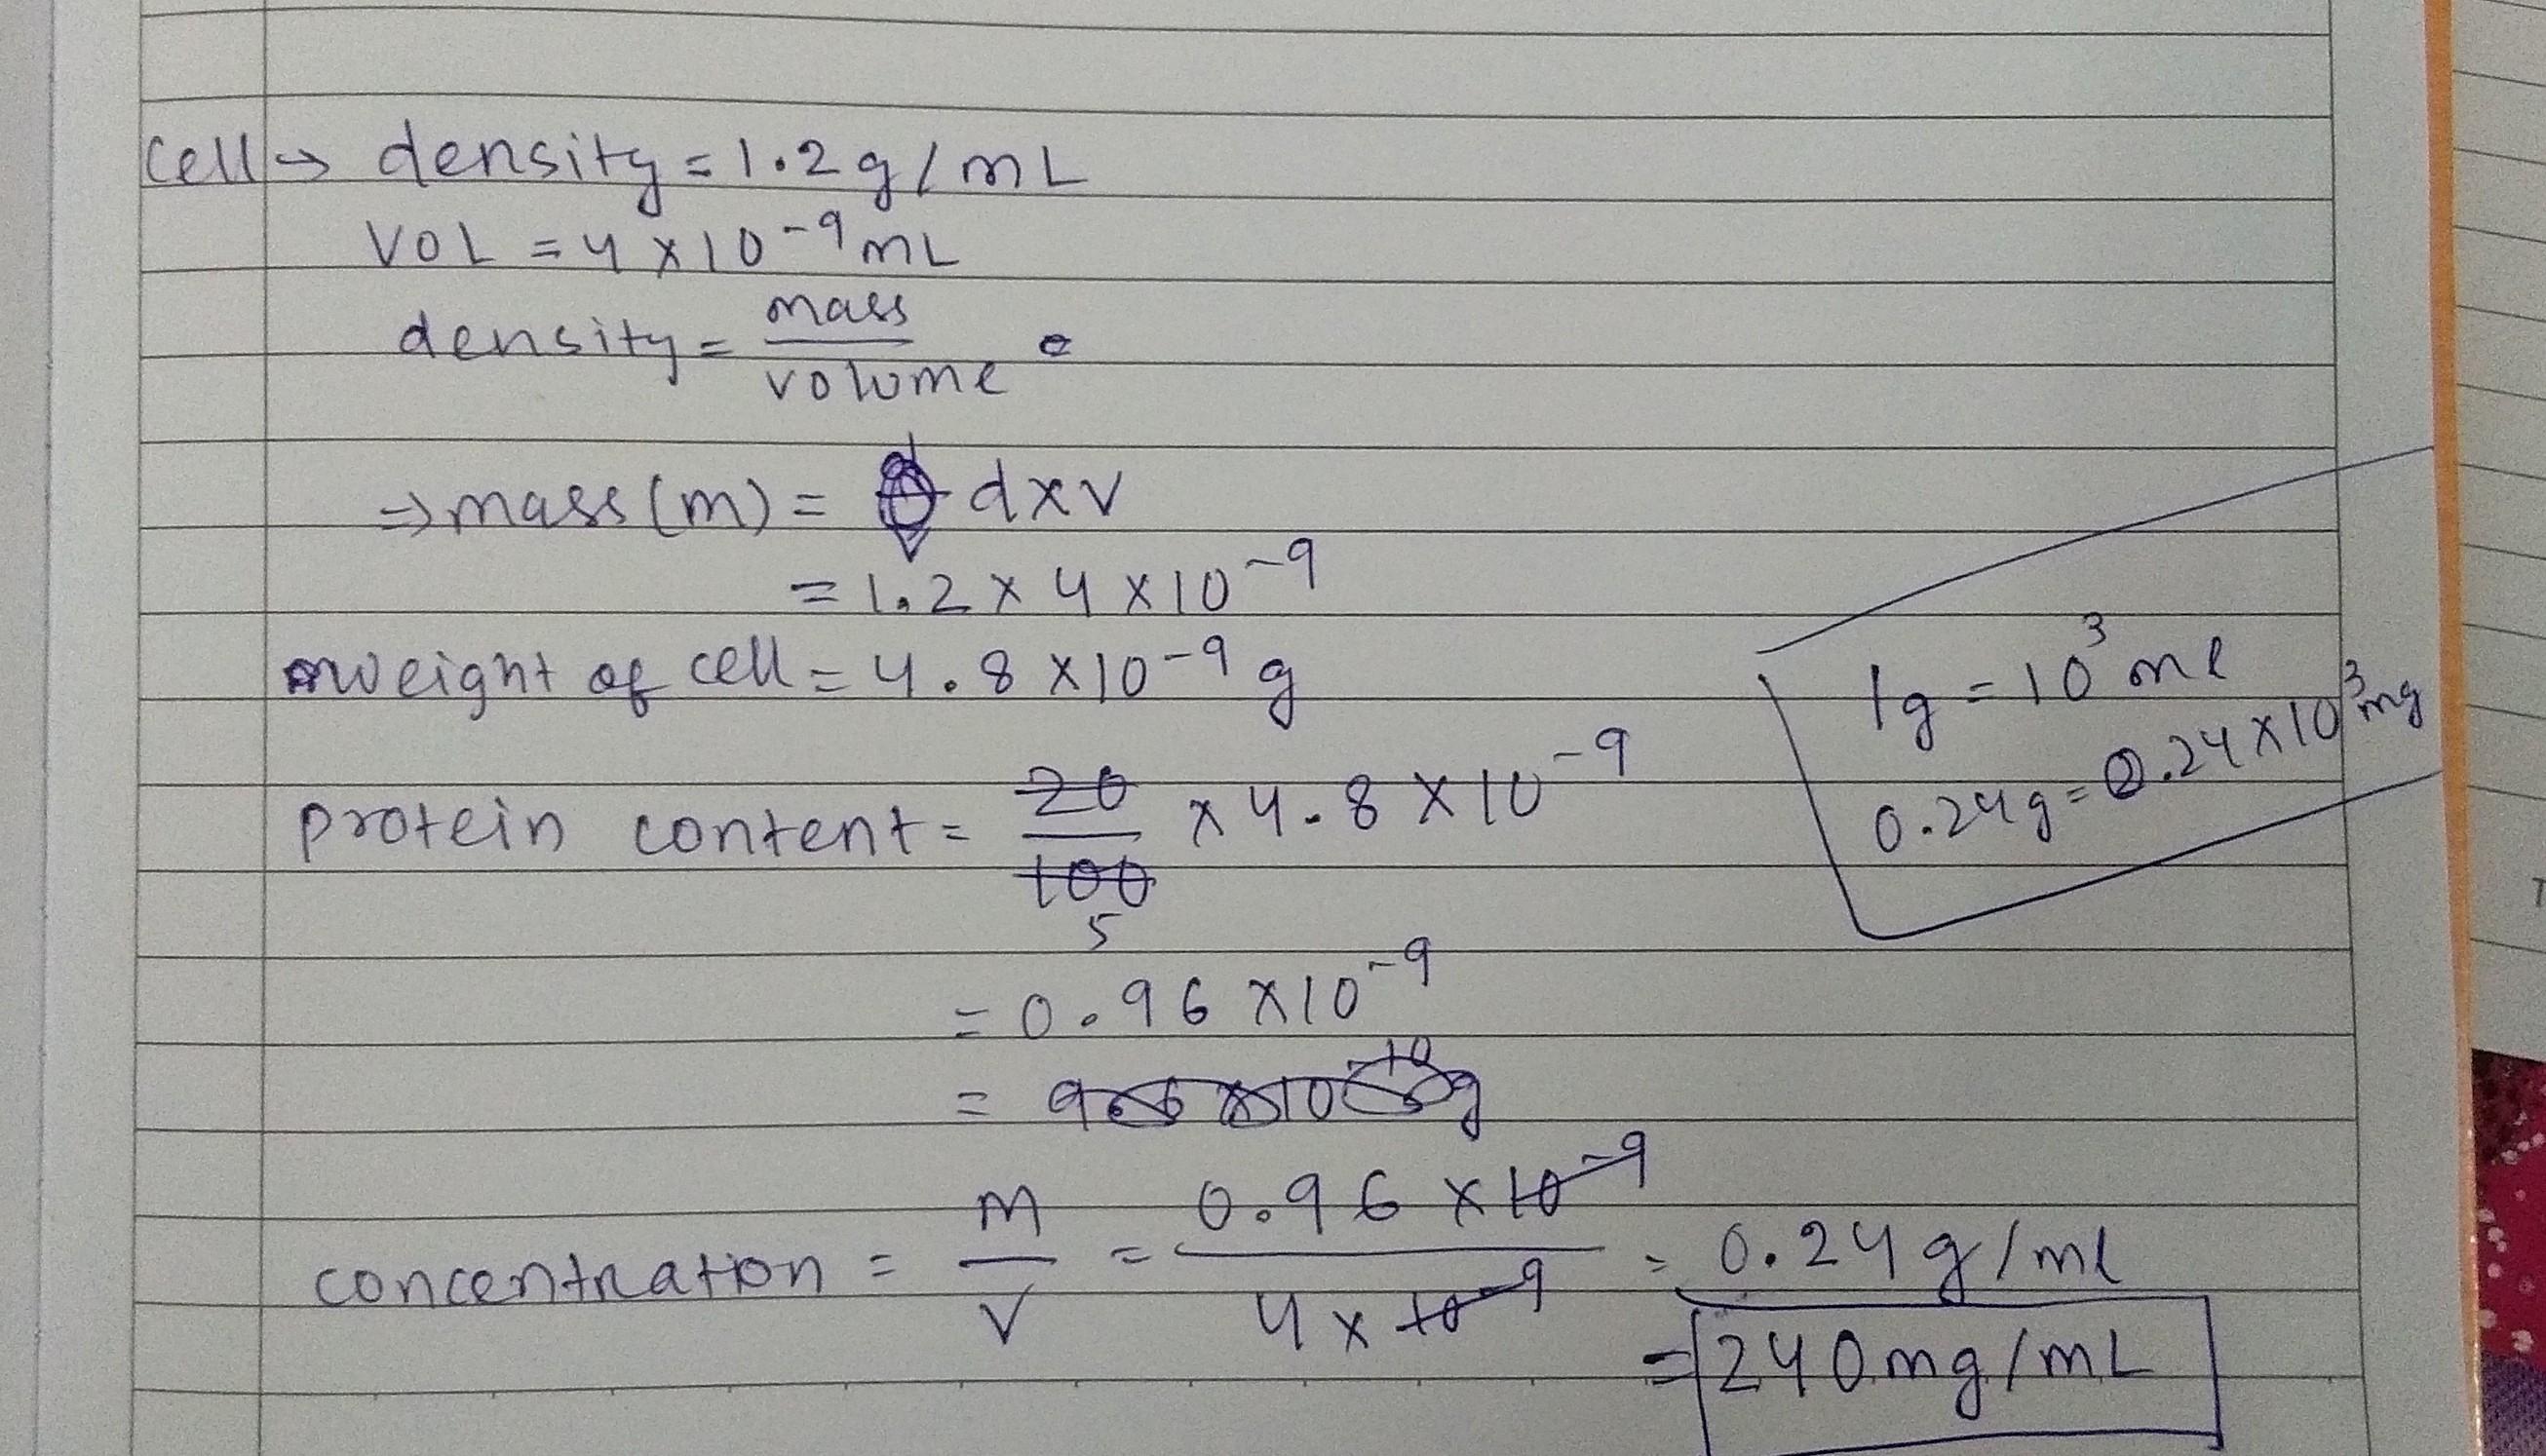 cell → density = 1.2 g / mL
VOL = 4 × 10⁻⁹ mL
density = mass / volume
⇒ mass (m) = d × v
= 1.2 × 4 × 10⁻⁹
weight of cell = 4.8 × 10⁻⁹ g
protein content = 20 / 100 × 4.8 × 10⁻⁹
5
= 0.96 × 10⁻⁹
= 9.6 × 10⁻¹⁰ g
concentration = M / V = 0.96 × 10⁻⁹ / 4 × 10⁻⁹ = 0.24 g / ml
= 240 mg / mL
1g = 10³ ml
0.24 g = 0.24 × 10³ mg